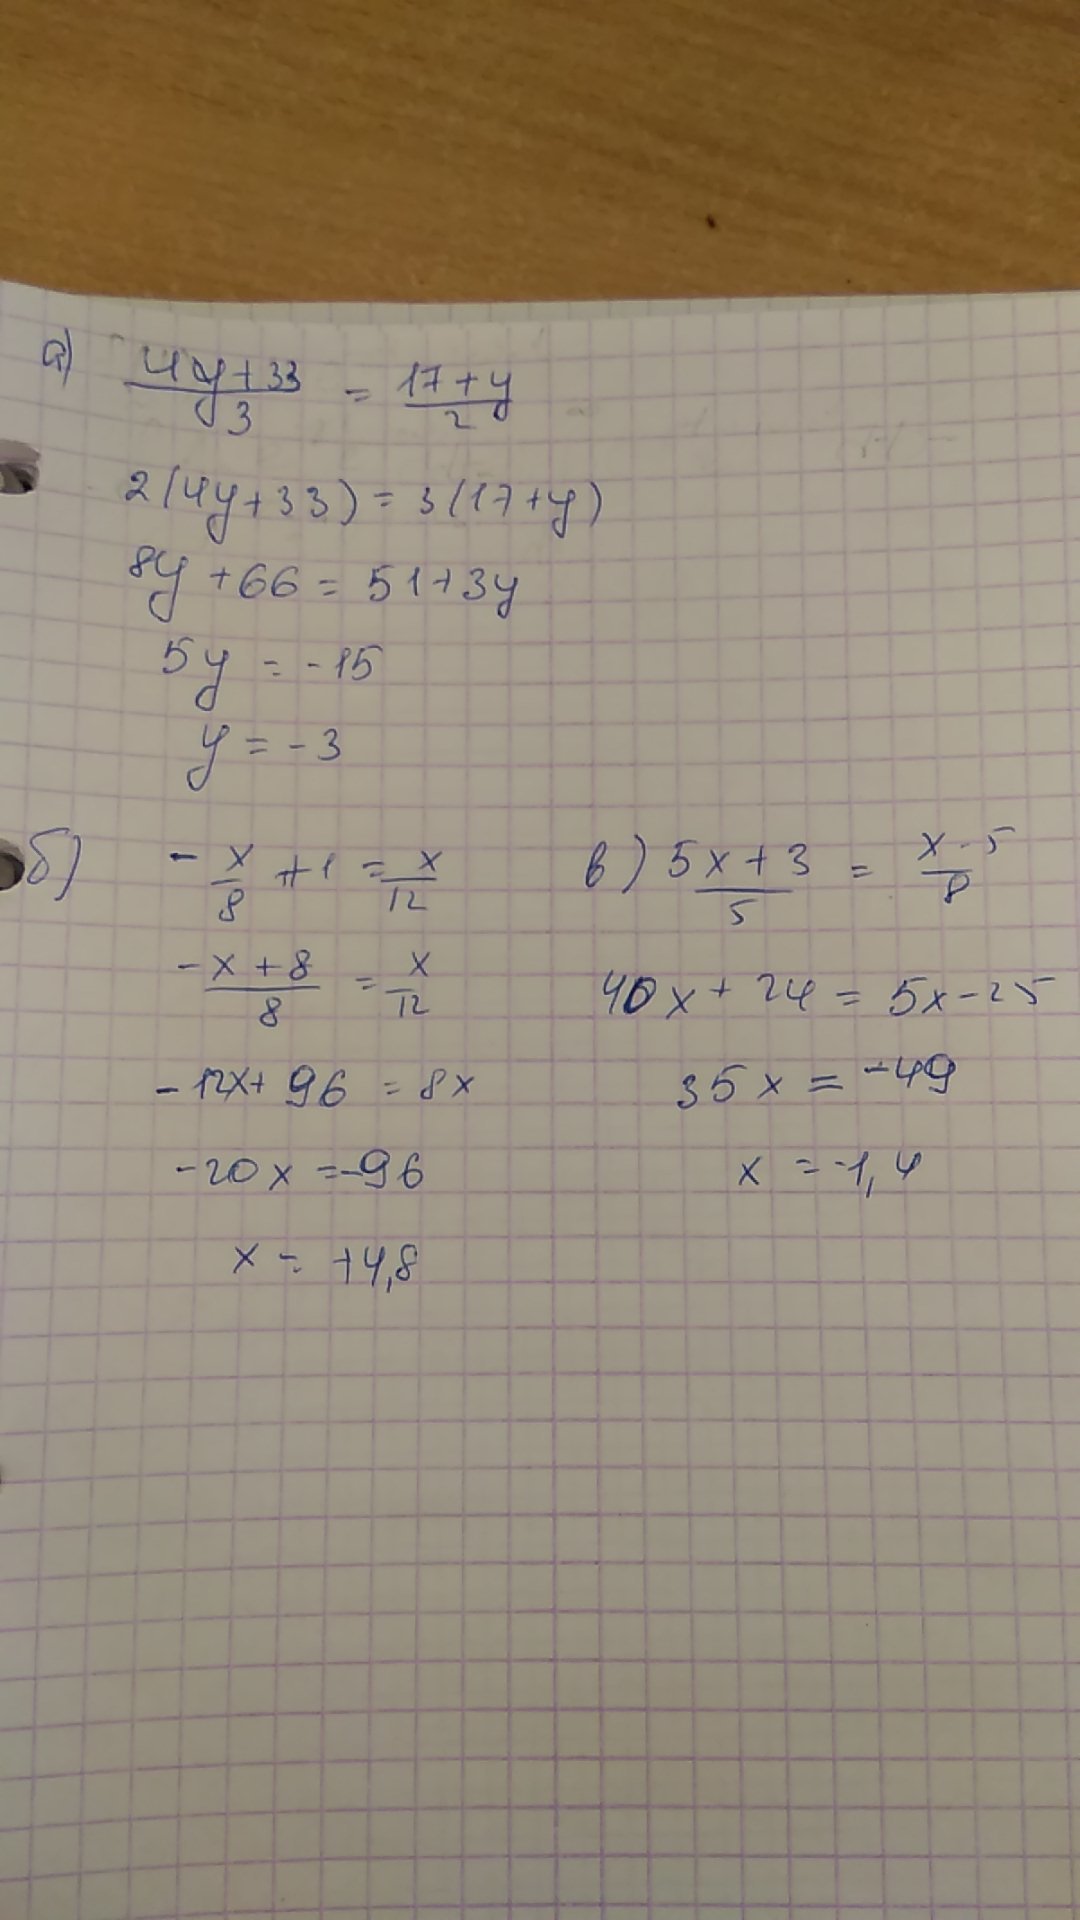 а) (4y+33)/3 = (17+y)/2
2(4y+33) = 3(17+y)
8y +66 = 51+3y
5y = -15
y = -3
б) - x/8 + 1 = x/12
(-x+8)/8 = x/12
-12x+ 96 = 8x
-20x =-96
x = +4,8
в) (5x+3)/5 = (x-5)/8
40x + 24 = 5x-25
35x = -49
x = -1,4